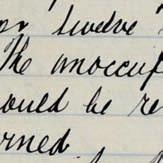 or twelve
The unoccup
ould be re
rned